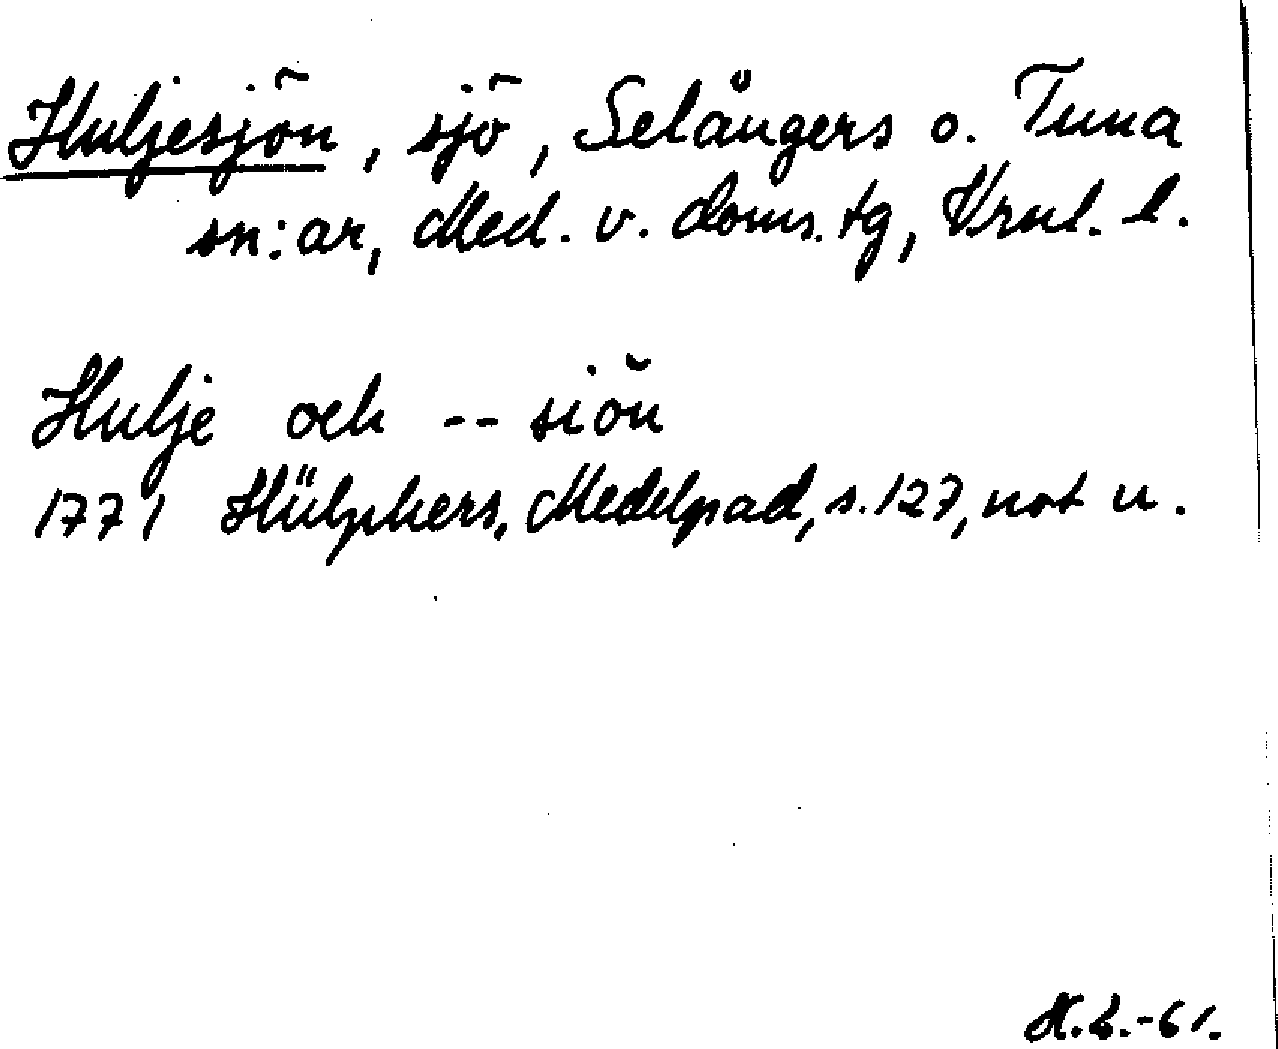 Huljesjön, sjö, Selångers o. Tuna
sn:ar, Med. v. doms. tg, Vrnl. l.
Hulje och -- siön
1771 Hülphers, Medelpad, s. 127, not u.
H.L.-61.